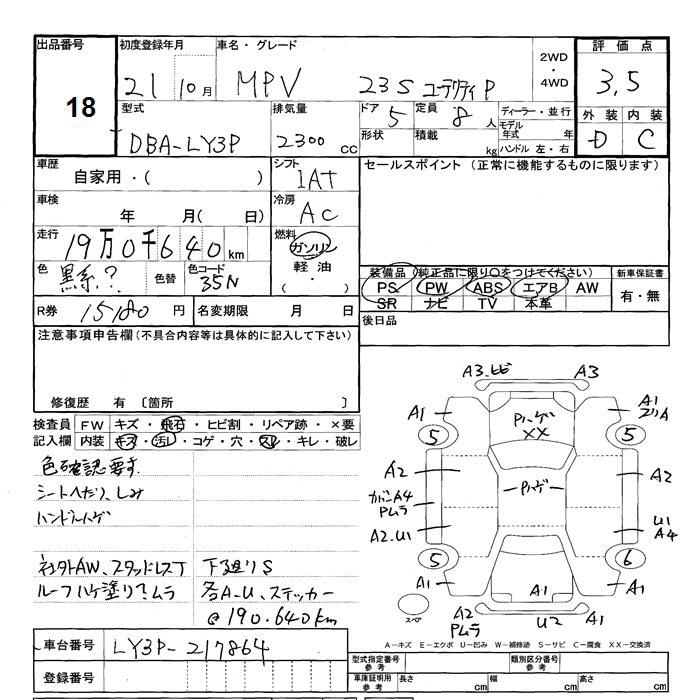 出品番号 初度登録年月 車名・グレード 2WD・4WD 評価点
18 21 10月 MPV 23S ユーテリティP 3,5
型式 排気量 ドア 定員 ディーラー・並行 外装 内装
DBA-LY3P 2300 CC 5 8人 モデル年式 年 D C
形状 積載 kg ハンドル 左・右
車歴 シフト セールスポイント (正常に機能するものに限ります)
自家用・( ) IAT
車検 冷房
年 月( 日) AC
走行 燃料
19万0千640km ガソリン
色 色替 色コード 軽油
黒系? 35N ・( )
装備品(純正品に限り○をつけてください) 新車保証書
PS PW ABS エアB AW 有・無
SR ナビ TV 本革
R券 15180円 名変期限 月 日 後日品
注意事項申告欄(不具合内容等は具体的に記入して下さい)
修復歴 有 〔箇所 〕
検査員 FW キズ・飛石・ヒビ割・リペア跡・×要
記入欄 内装 キズ・汚レ・コゲ・穴・スレ・キレ・破レ
色確認要す
シートへたり、しみ
ハンドルハゲ
社外AW、スタッドレスT 下廻りS
ルーフハケ塗り?ムラ 各A-U、ステッカー
@190.640km
A3.ヒビ A3
A1 Pハゲ A1
XX
5 5
A2 Pハゲ A2
カバンA4
Pムラ
A2.U1 U1
A4
5 6
A1 A1 A1
スペア A2 U2
Pムラ
A-キズ E-エクボ U-凹み W-補修跡 S-サビ C-腐食 XX-交換済
車台番号 LY3P-217864
登録番号
型式指定番号 参考 類別区分番号 参考
車庫証明用 参考 長さ cm 幅 cm 高さ cm